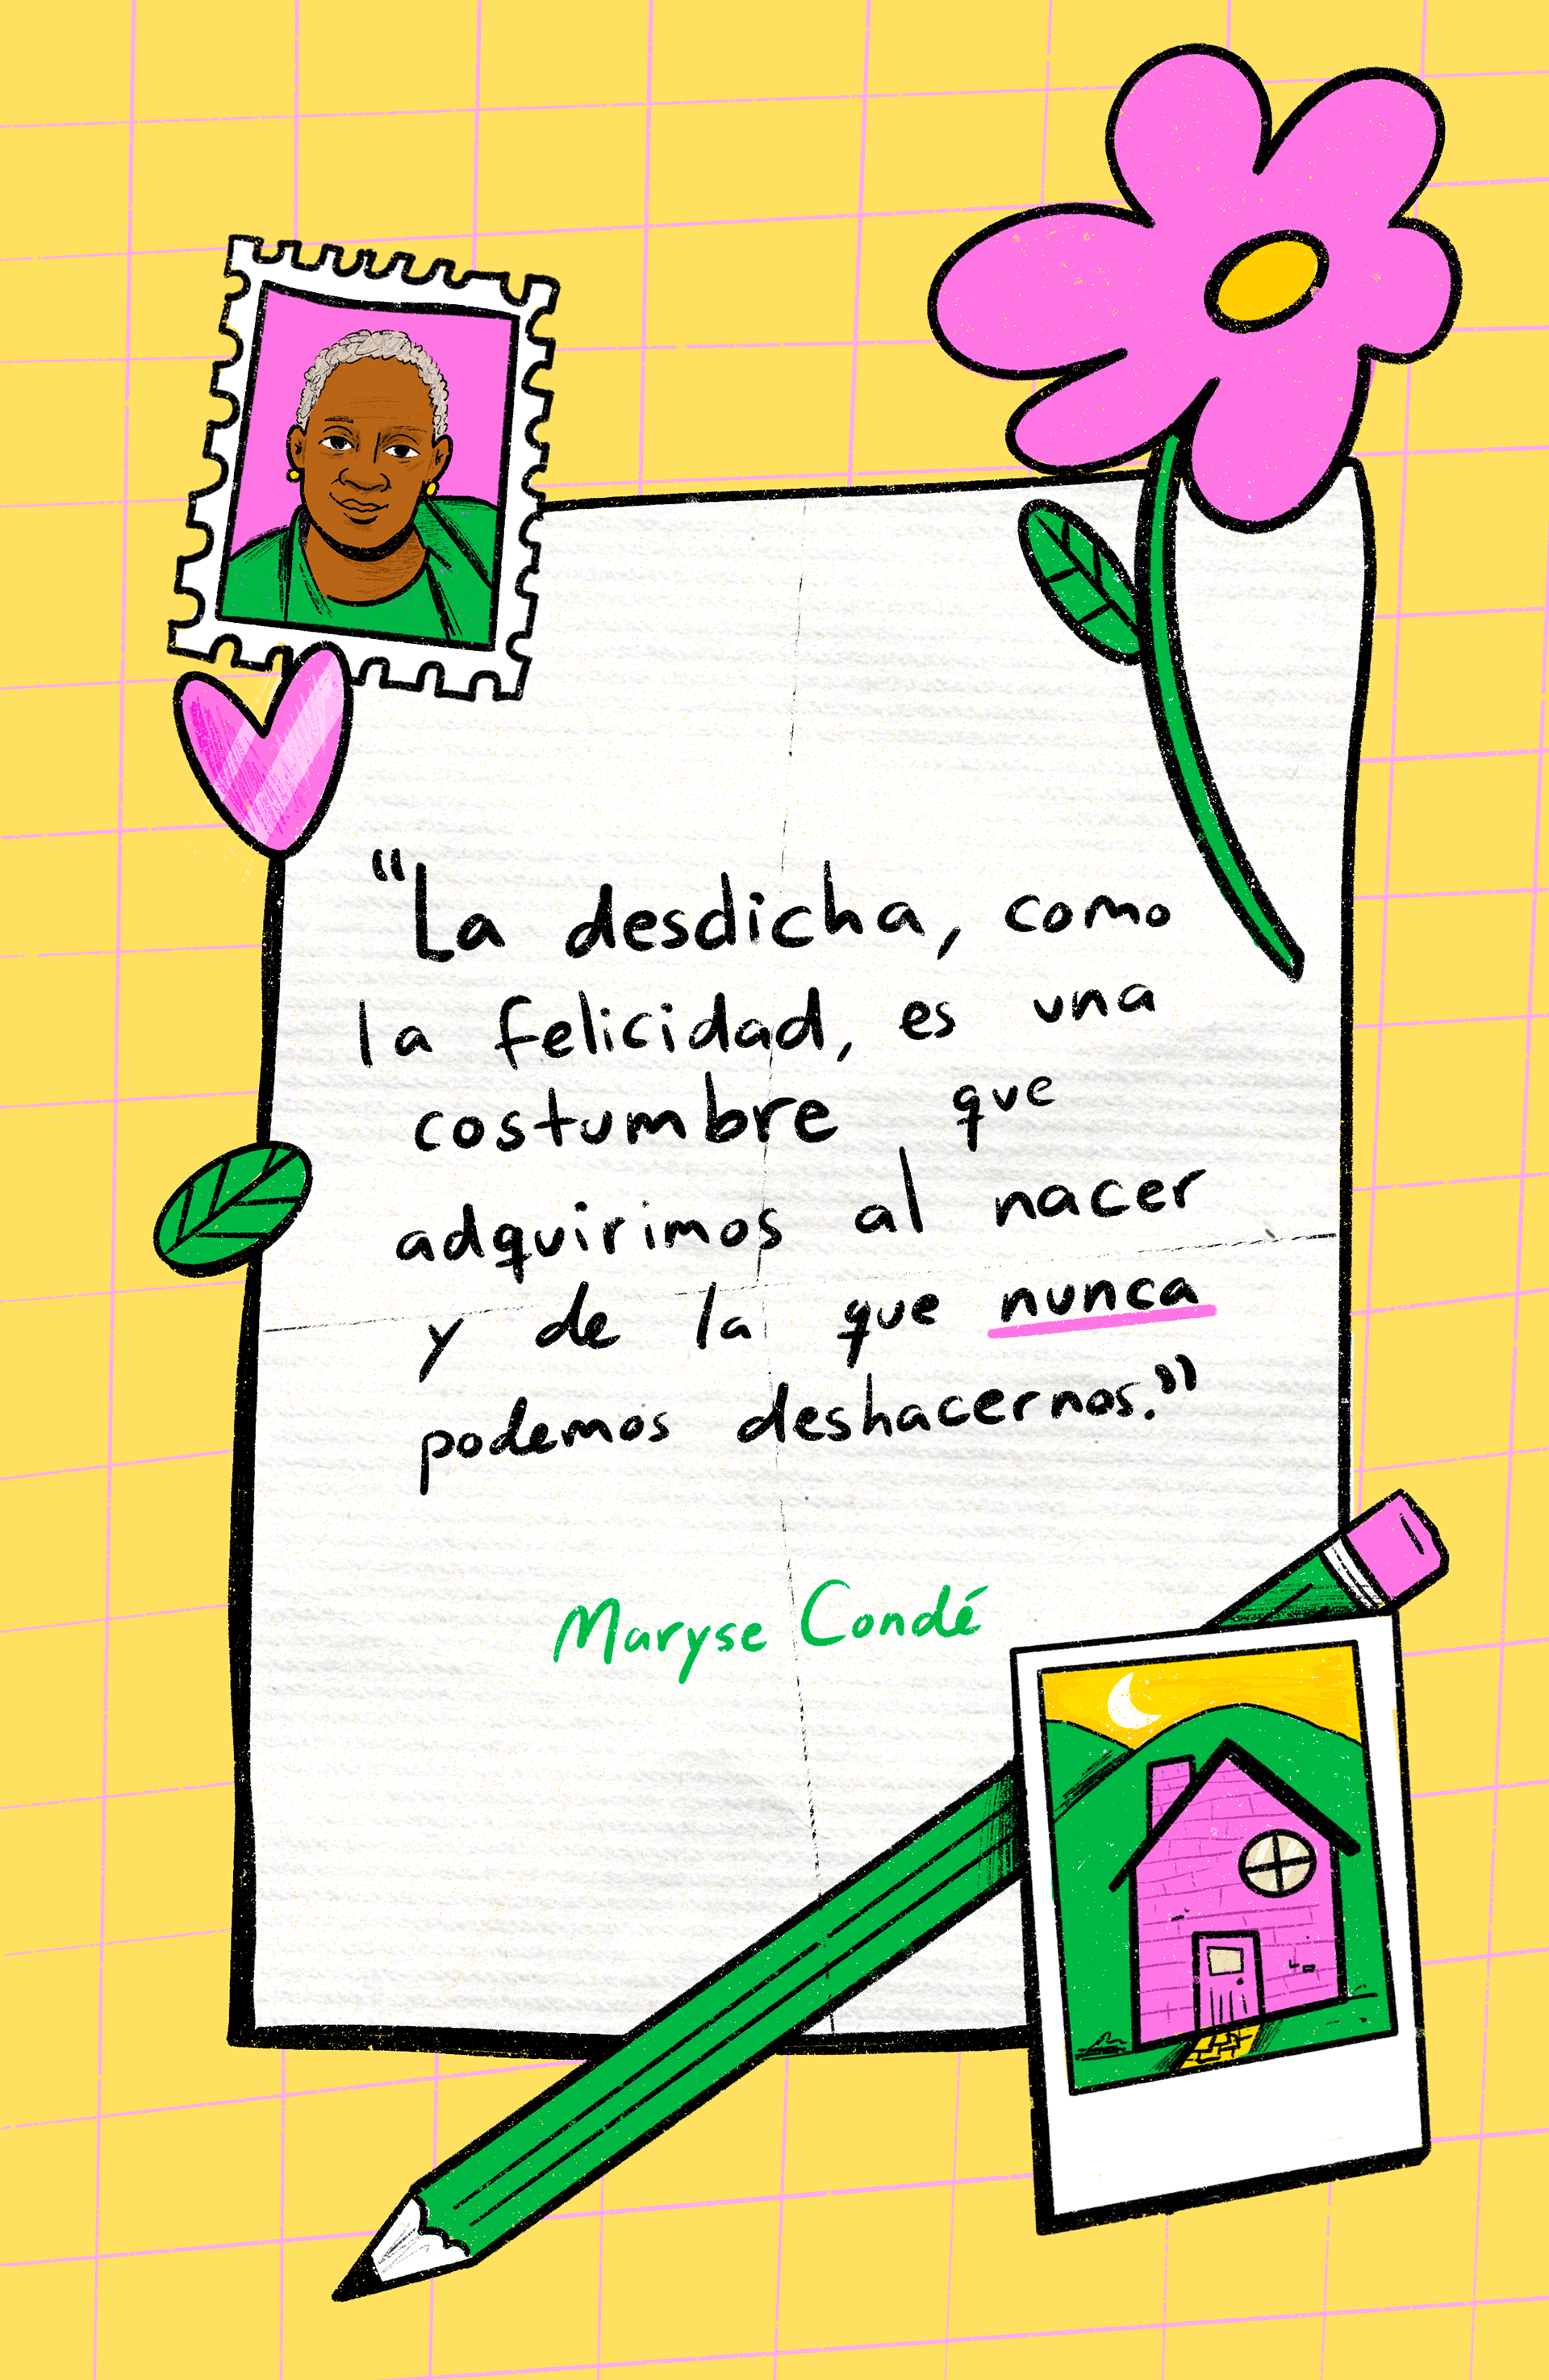 “La desdicha, como
la felicidad, es una
costumbre que
adquirimos al nacer
y de la que nunca
podemos deshacernos.”
Maryse Condé